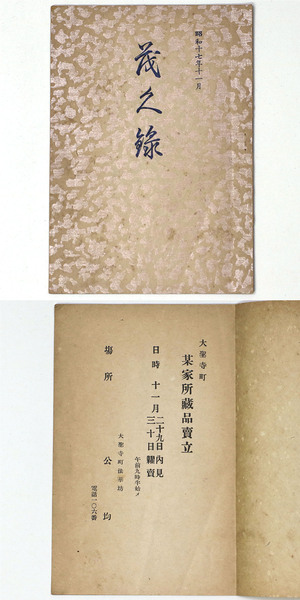 昭和十七年十一月
茂久錄
大聖寺町
某家所藏品賣立
日時 十一月二十九日內見
三十日糶賣
午前九時半始メ
場所 公均
大聖寺町
電話一〇六番